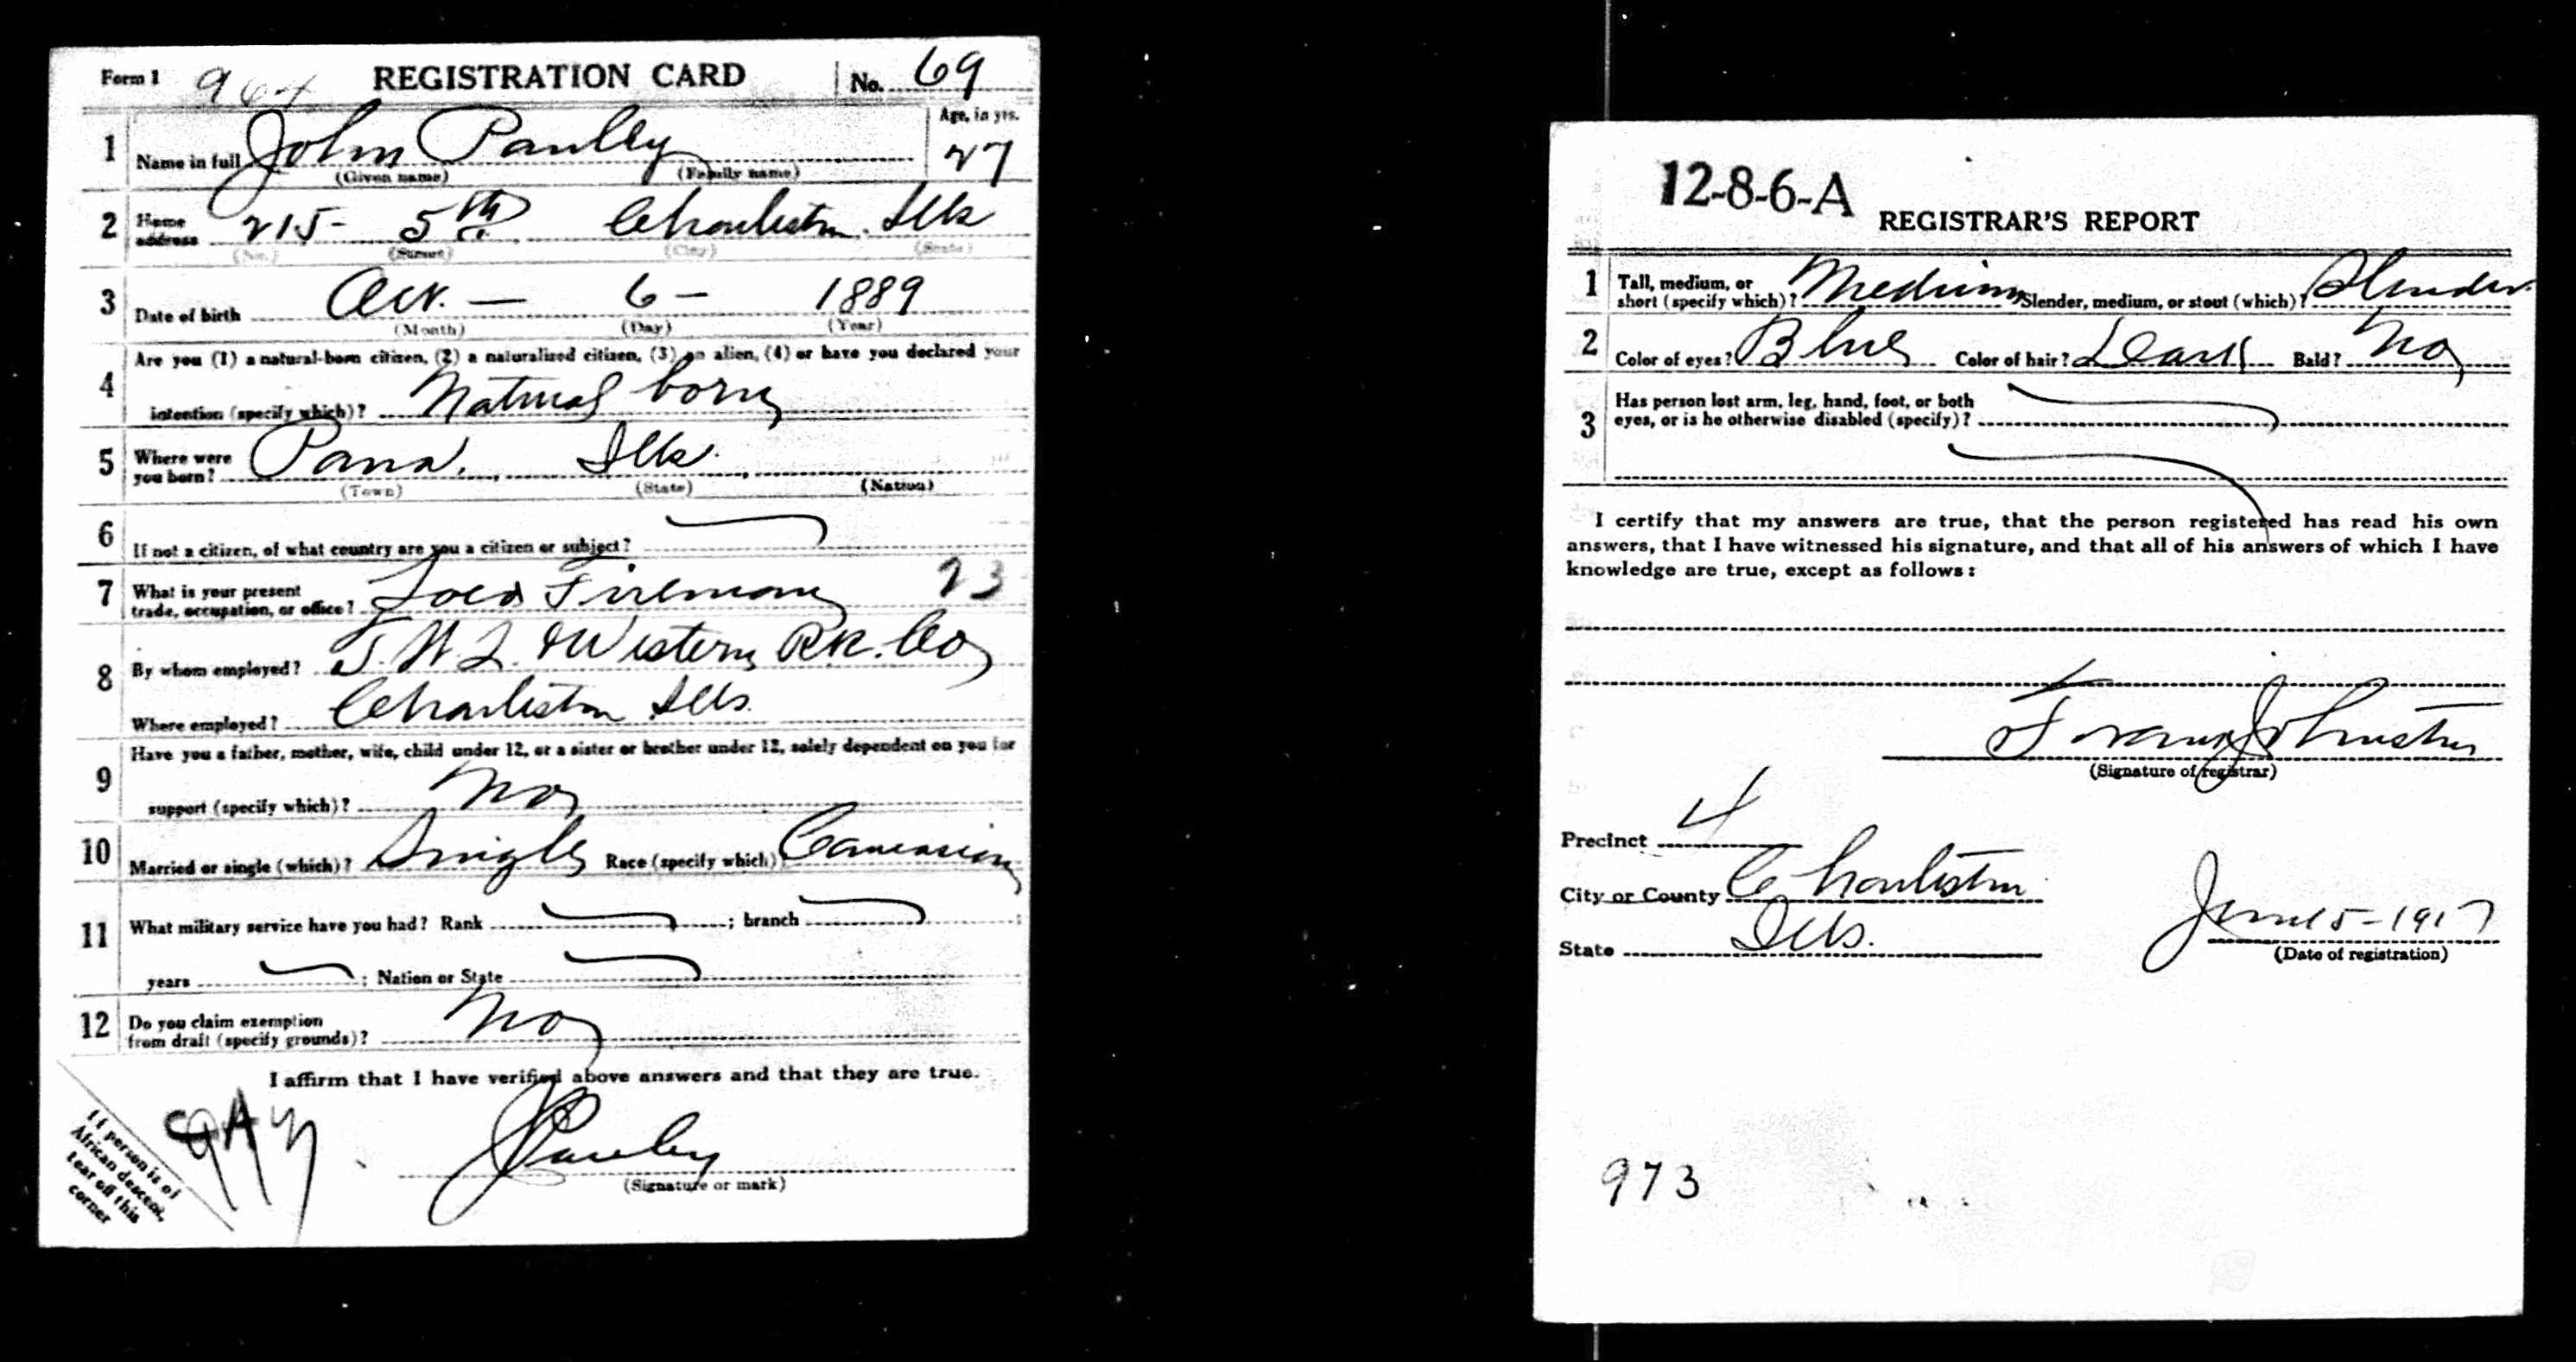 Form 1 964 REGISTRATION CARD No. 69
1 Name in full John Pauley Age, in yrs. 27
(Given name) (Family name)
2 Home address 215- 5th Charleston Ills
(No.) (Street) (City) (State)
3 Date of birth Oct. — 6 — 1889
(Month) (Day) (Year)
4 Are you (1) a natural-born citizen, (2) a naturalized citizen, (3) an alien, (4) or have you declared your
intention (specify which)? Natural born
5 Where were you born? Pana, Ills.
(Town) (State) (Nation)
6 If not a citizen, of what country are you a citizen or subject?
7 What is your present trade, occupation, or office? Loco Fireman 23
8 By whom employed? & Western RR. Co
Where employed? Charleston Ills.
9 Have you a father, mother, wife, child under 12, or a sister or brother under 12, solely dependent on you for
support (specify which)? No
10 Married or single (which)? Single Race (specify which)? Caucasian
11 What military service have you had? Rank ; branch ;
years ; Nation or State
12 Do you claim exemption from draft (specify grounds)? No
I affirm that I have verified above answers and that they are true.
J Pauley
(Signature or mark)
If person is of
African descent,
tear off this
corner
12-8-6-A
REGISTRAR'S REPORT
1 Tall, medium, or short (specify which)? Medium Slender, medium, or stout (which)? Slender
2 Color of eyes? Blue Color of hair? Dark Bald? No
3 Has person lost arm, leg, hand, foot, or both
eyes, or is he otherwise disabled (specify)?
I certify that my answers are true, that the person registered has read his own
answers, that I have witnessed his signature, and that all of his answers of which I have
knowledge are true, except as follows:
Frank Johnston
(Signature of registrar)
Precinct 4
City or County Charleston
State Ills.
June 5-1917
(Date of registration)
973